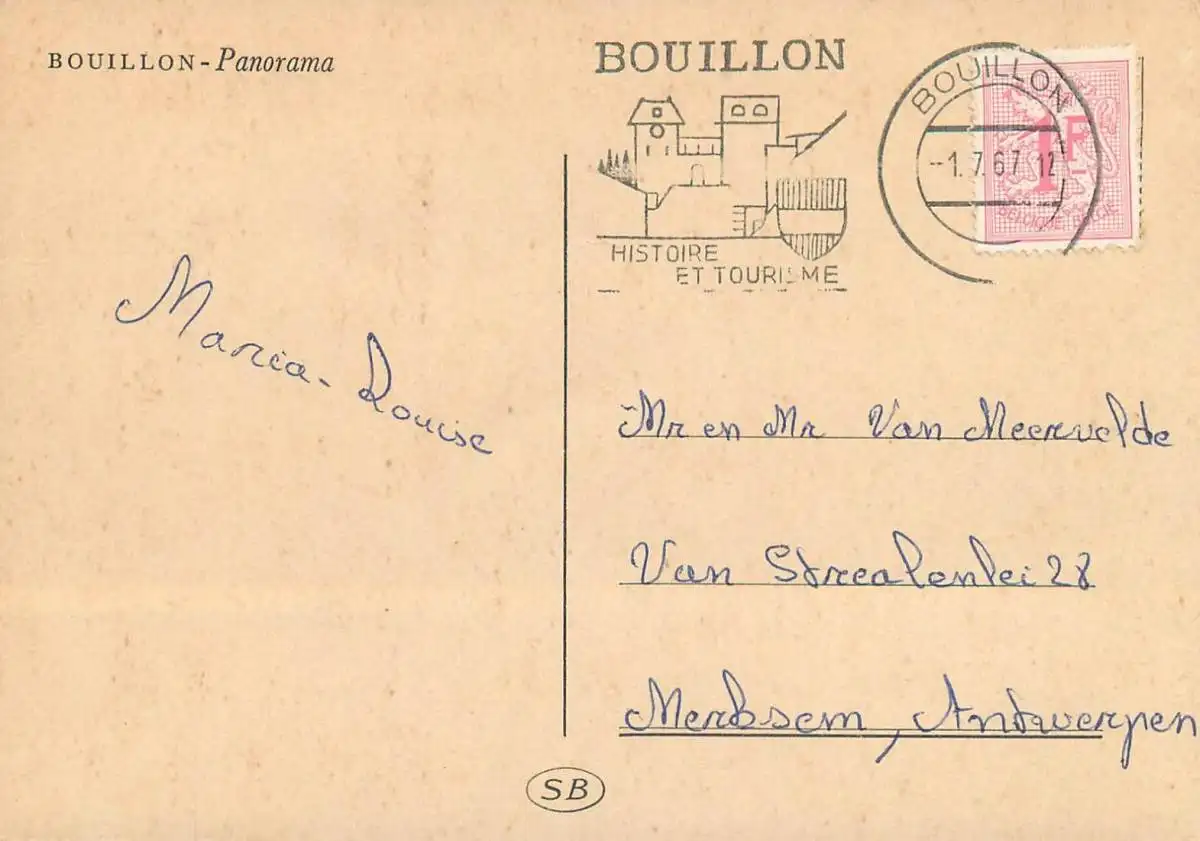 BOUILLON - Panorama
BOUILLON
HISTOIRE
ET TOURISME
BOUILLON
-1.7.67 12
1F
BELGIQUE-BELGIË
Maria-Louise
Mr en Mr Van Meervelde
Van Strealenlei 28
Merksem, Antwerpen
SB